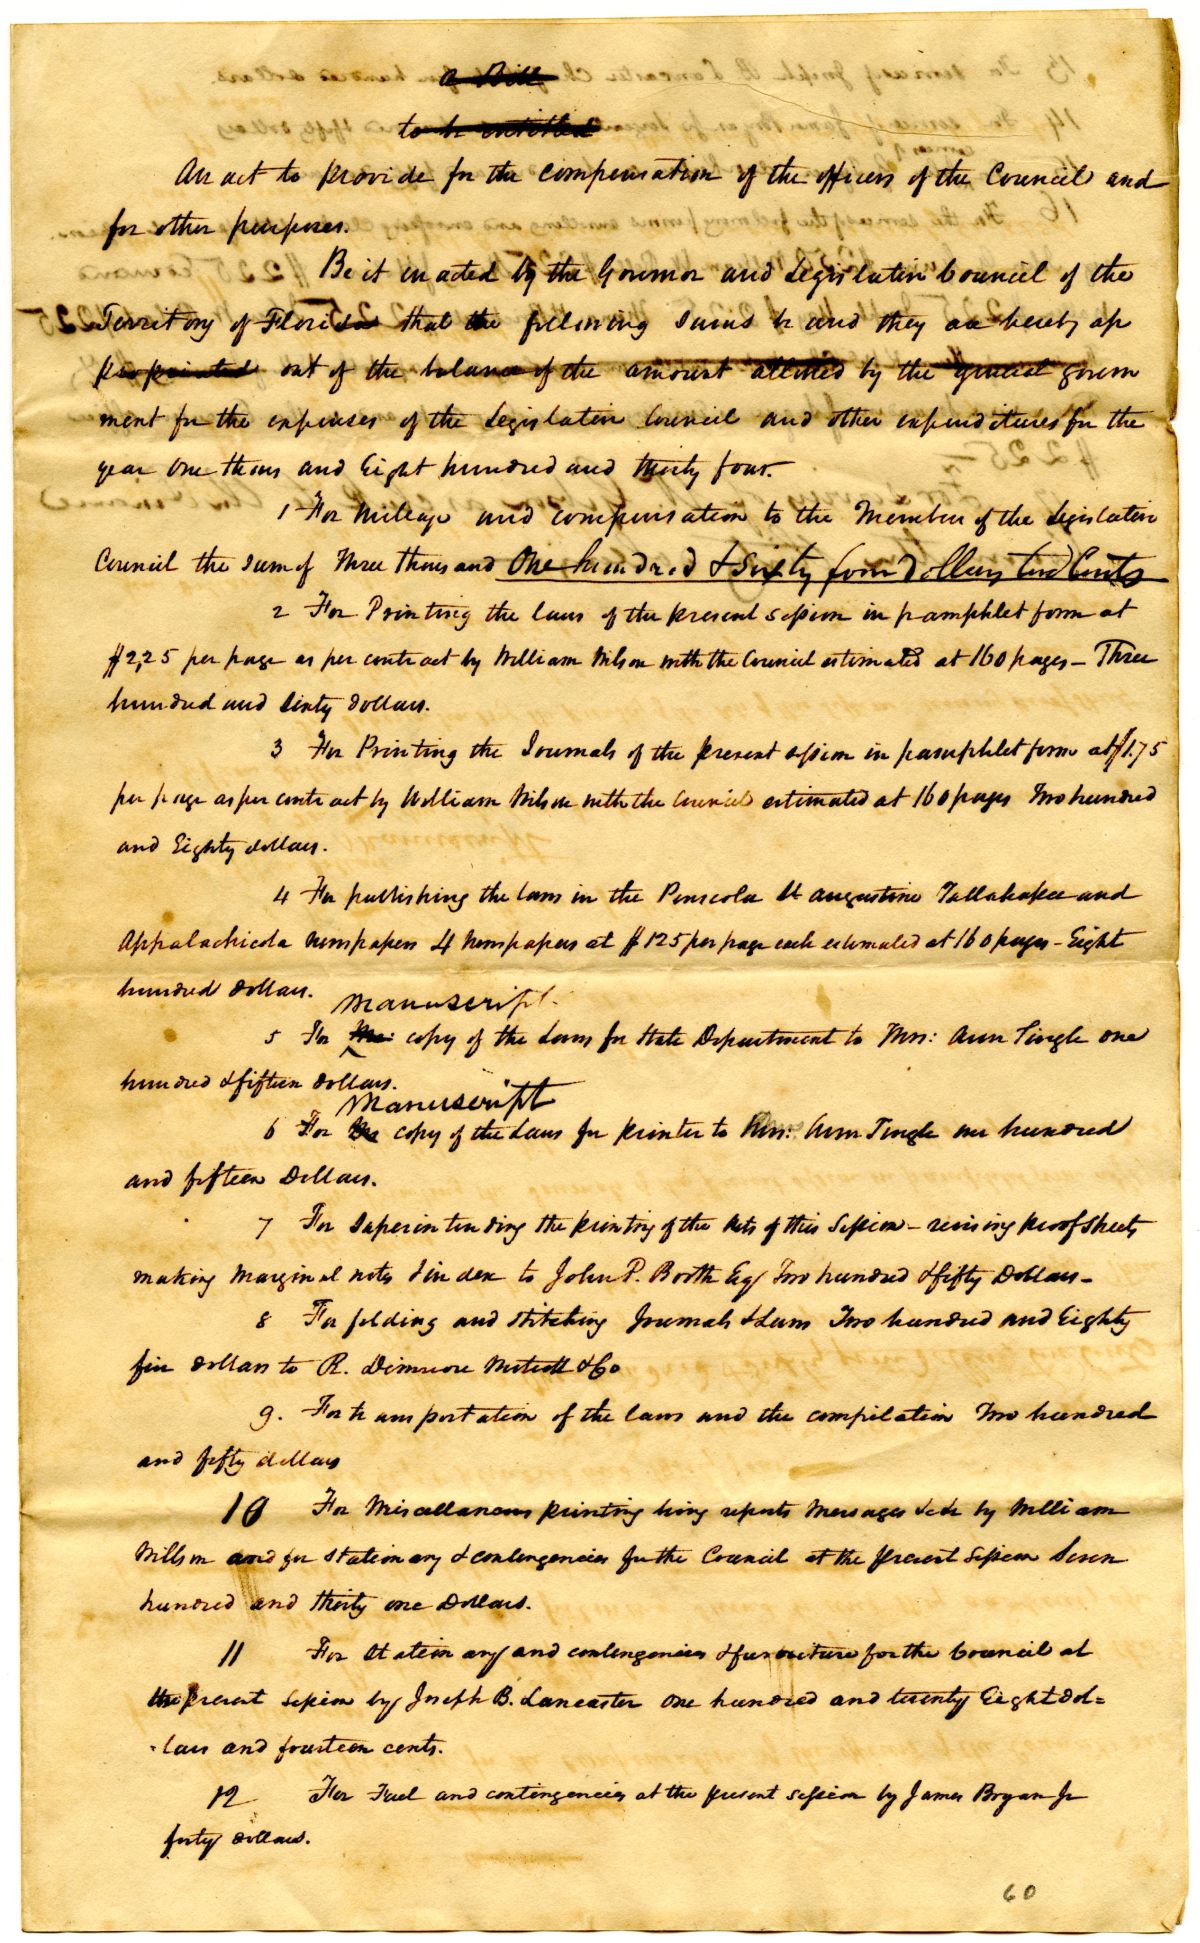 a Bill
to be entitled
An act to provide for the compensation of the officers of the Council and
for other purposes.
Be it enacted by the Governor and Legislative Council of the
Territory of Florida that the following sums be and they are hereby ap
propriated out of the balance of the amount allotted by the general govern
ment for the expenses of the Legislative Council and other expenditures for the
year One thous and Eight hundred and thirty four.
1 For Mileage and compensation to the Member of the Legislative
Council the sum of Three thousand One hundred & Sixty four Dollars two Cents
2 For Printing the laws of the present session in pamphlet form at
$2,25 per page as per contract by William Wilson with the Council estimated at 160 pages - Three
hundred and sixty dollars.
3 For Printing the Journals of the present session in pamphlet form at $1.75
per page as per contract by William Wilson with the Council estimated at 160 pages Two hundred
and Eighty dollars.
4 For publishing the laws in the Penscola St Augustine Tallahassee and
Appalachicola newspapers 4 newspapers at $125 per page each estimated at 160 pages - Eight
hundred dollars.
Manuscript
5 For copy of the Laws for State Department to Mrs: Ann Tingle one
hundred & fifteen dollars.
Manuscript
6 For copy of the Laws for printer to Mrs: Ann Tingle one hundred
and fifteen Dollars.
7 For Superintending the printing of the Acts of this Session - revising proof sheets
making marginal notes & index to John P. Booth Esq Two hundred & fifty Dollars -
8 For folding and stitching Journals & Laws Two hundred and Eighty
five dollars to R. Dinsmore & Co
9. For transportation of the laws and the compilation Two hundred
and fifty dollars
10 For Miscellaneous printing being reports Messages &c &c by William
Wilson and for stationary & contengencies for the Council at the present Session Seven
hundred and thirty one Dollars.
11 For Stationary and contengencies & furniture for the Council at
the present Session by Joseph B. Lancaster One hundred and twenty Eight dol=
-lars and fourteen cents.
12 For Fuel and contingencies at the present session by James Bryan Jr
forty dollars.
60